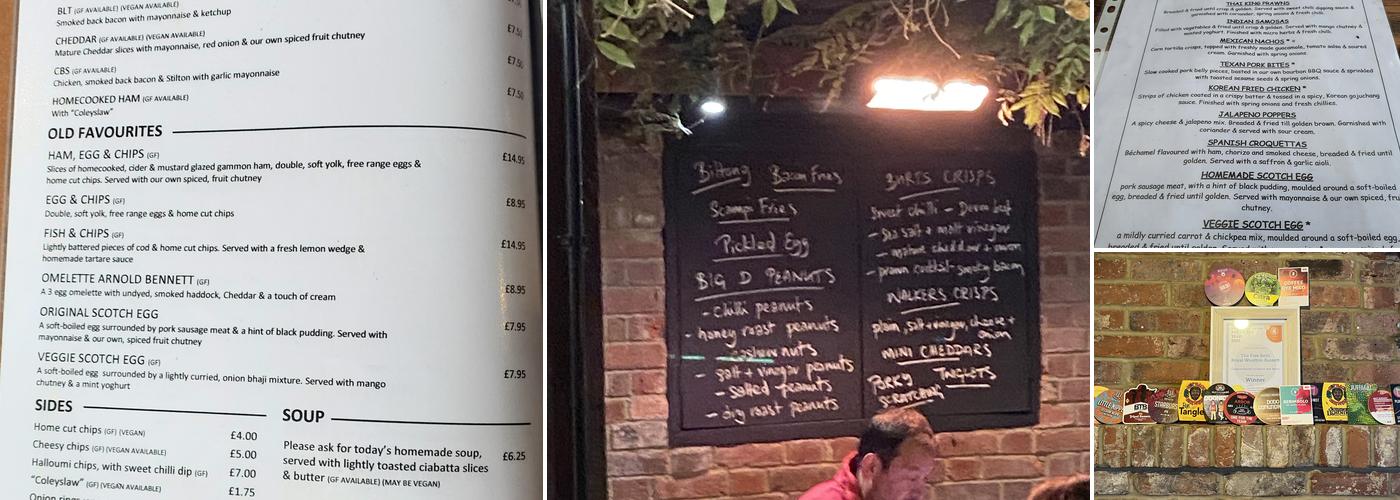 BLT (GF AVAILABLE) (VEGAN AVAILABLE)
Smoked back bacon with mayonnaise & ketchup
CHEDDAR (GF AVAILABLE) (VEGAN AVAILABLE)
£7.50
Mature Cheddar slices with mayonnaise, red onion & our own spiced fruit chutney
CBS (GF AVAILABLE)
£7.50
Chicken, smoked back bacon & Stilton with garlic mayonnaise
HOMECOOKED HAM (GF AVAILABLE)
£7.50
With "Coleyslaw"
OLD FAVOURITES
HAM, EGG & CHIPS (GF)
£14.95
Slices of homecooked, cider & mustard glazed gammon ham, double, soft yolk, free range eggs &
home cut chips. Served with our own spiced, fruit chutney
EGG & CHIPS (GF)
£8.95
Double, soft yolk, free range eggs & home cut chips
FISH & CHIPS (GF)
£14.95
Lightly battered pieces of cod & home cut chips. Served with a fresh lemon wedge &
homemade tartare sauce
OMELETTE ARNOLD BENNETT (GF)
£8.95
A 3 egg omelette with undyed, smoked haddock, Cheddar & a touch of cream
ORIGINAL SCOTCH EGG
£7.95
A soft-boiled egg surrounded by pork sausage meat & a hint of black pudding. Served with
mayonnaise & our own, spiced fruit chutney
VEGGIE SCOTCH EGG (GF)
£7.95
A soft-boiled egg surrounded by a lightly curried, onion bhaji mixture. Served with mango
chutney & a mint yoghurt
SIDES
Home cut chips (GF) (VEGAN)
£4.00
Cheesy chips (GF) (VEGAN AVAILABLE)
£5.00
Halloumi chips, with sweet chilli dip (GF)
£7.00
"Coleyslaw" (GF) (VEGAN AVAILABLE)
£1.75
Onion rings
SOUP
Please ask for today's homemade soup,
£6.25
served with lightly toasted ciabatta slices
& butter (GF AVAILABLE) (MAY BE VEGAN)
Biltong Bacon Fries
Scampi Fries
Pickled Egg
BIG D PEANUTS
- chilli peanuts
- honey roast peanuts
- cashew nuts
- salt + vinegar peanuts
- salted peanuts
- dry roast peanuts
BURTS CRISPS
Sweet chilli - Devon beef
- sea salt + malt vinegar
- mature cheddar + onion
- prawn cocktail - smokey bacon
WALKERS CRISPS
plain, salt+vinegar, cheese +
onion
MINI CHEDDARS
PORKY
SCRATCHINGS
TWIGLETS
THAI KING PRAWNS
Breaded & fried until crisp & golden. Served with sweet chilli dipping sauce &
garnished with coriander, spring onions & fresh chilli.
INDIAN SAMOSAS
Filled with vegetables & fried until crisp & golden. Served with mango chutney &
minted yoghurt. Finished with micro herbs & fresh chilli.
MEXICAN NACHOS *
Corn tortilla crisps, topped with freshly made guacamole, tomato salsa & soured
cream. Garnished with spring onions.
TEXAN PORK BITES *
Slow cooked pork belly pieces, basted in our own bourbon BBQ sauce & sprinkled
with toasted sesame seeds & spring onions.
KOREAN FRIED CHICKEN *
Strips of chicken coated in a crispy batter & tossed in a spicy, Korean gojuchang
sauce. Finished with spring onions and fresh chillies.
JALAPENO POPPERS
A spicy cheese & jalapeno mix. Breaded & fried till golden brown. Garnished with
coriander & served with sour cream.
SPANISH CROQUETTAS
Béchamel flavoured with ham, chorizo and smoked cheese, breaded & fried until
golden. Served with a saffron & garlic aioli.
HOMEMADE SCOTCH EGG
pork sausage meat, with a hint of black pudding, moulded around a soft-boiled
egg, breaded & fried until golden. Served with mayonnaise & our own spiced, fru
chutney.
VEGGIE SCOTCH EGG *
a mildly curried carrot & chickpea mix, moulded around a soft-boiled egg,
breaded & fried until golden
Citra
Winner
BTB
Tangle